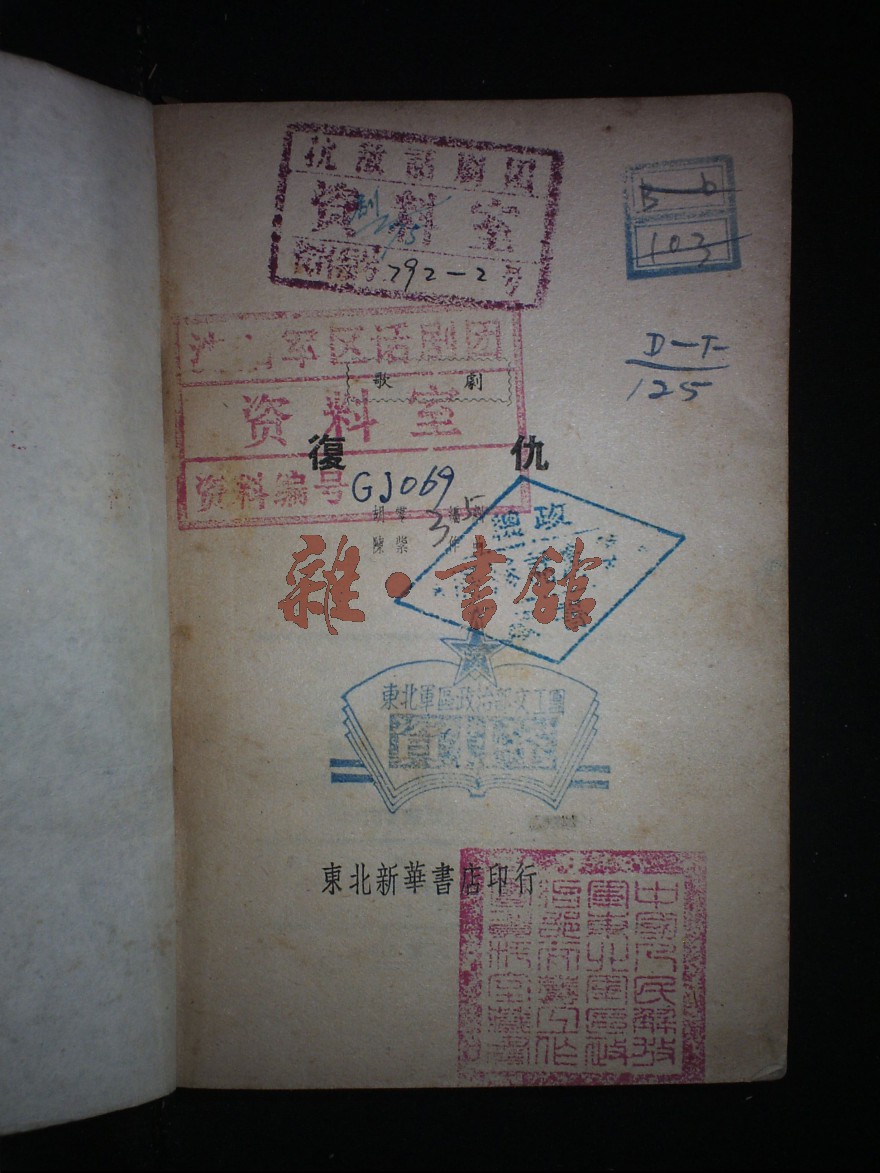 抗敌話劇团
资料室
资料编号792-2号
B 6
103
2
D-T-
125
军区话剧团
资料室
资料编号GJ069
3 5
歌 劇
復 仇
胡零 編劇
陳紫 作曲
總政
雜·書館
東北軍區政治部文工團
資料室
東北新華書店印行
中國人民解放
軍東北軍區政
治部文藝工作
團資料室藏書